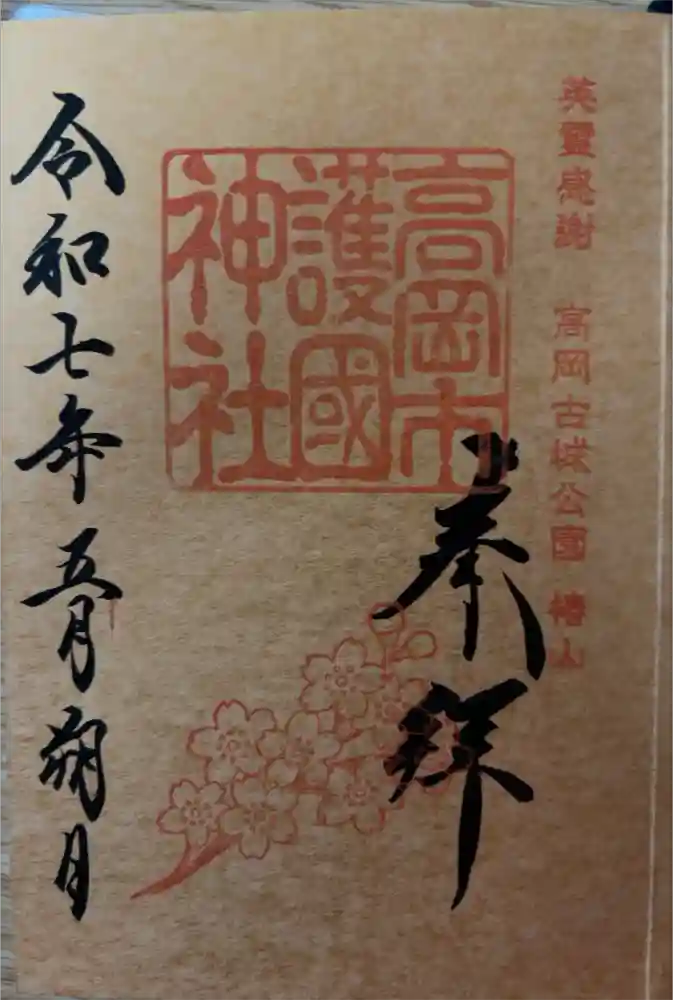 英靈感謝　高岡古城公園　椿山
高岡市
護國
神社
奉拜
令和七年五月朔月